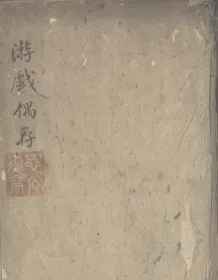 游戲偶存